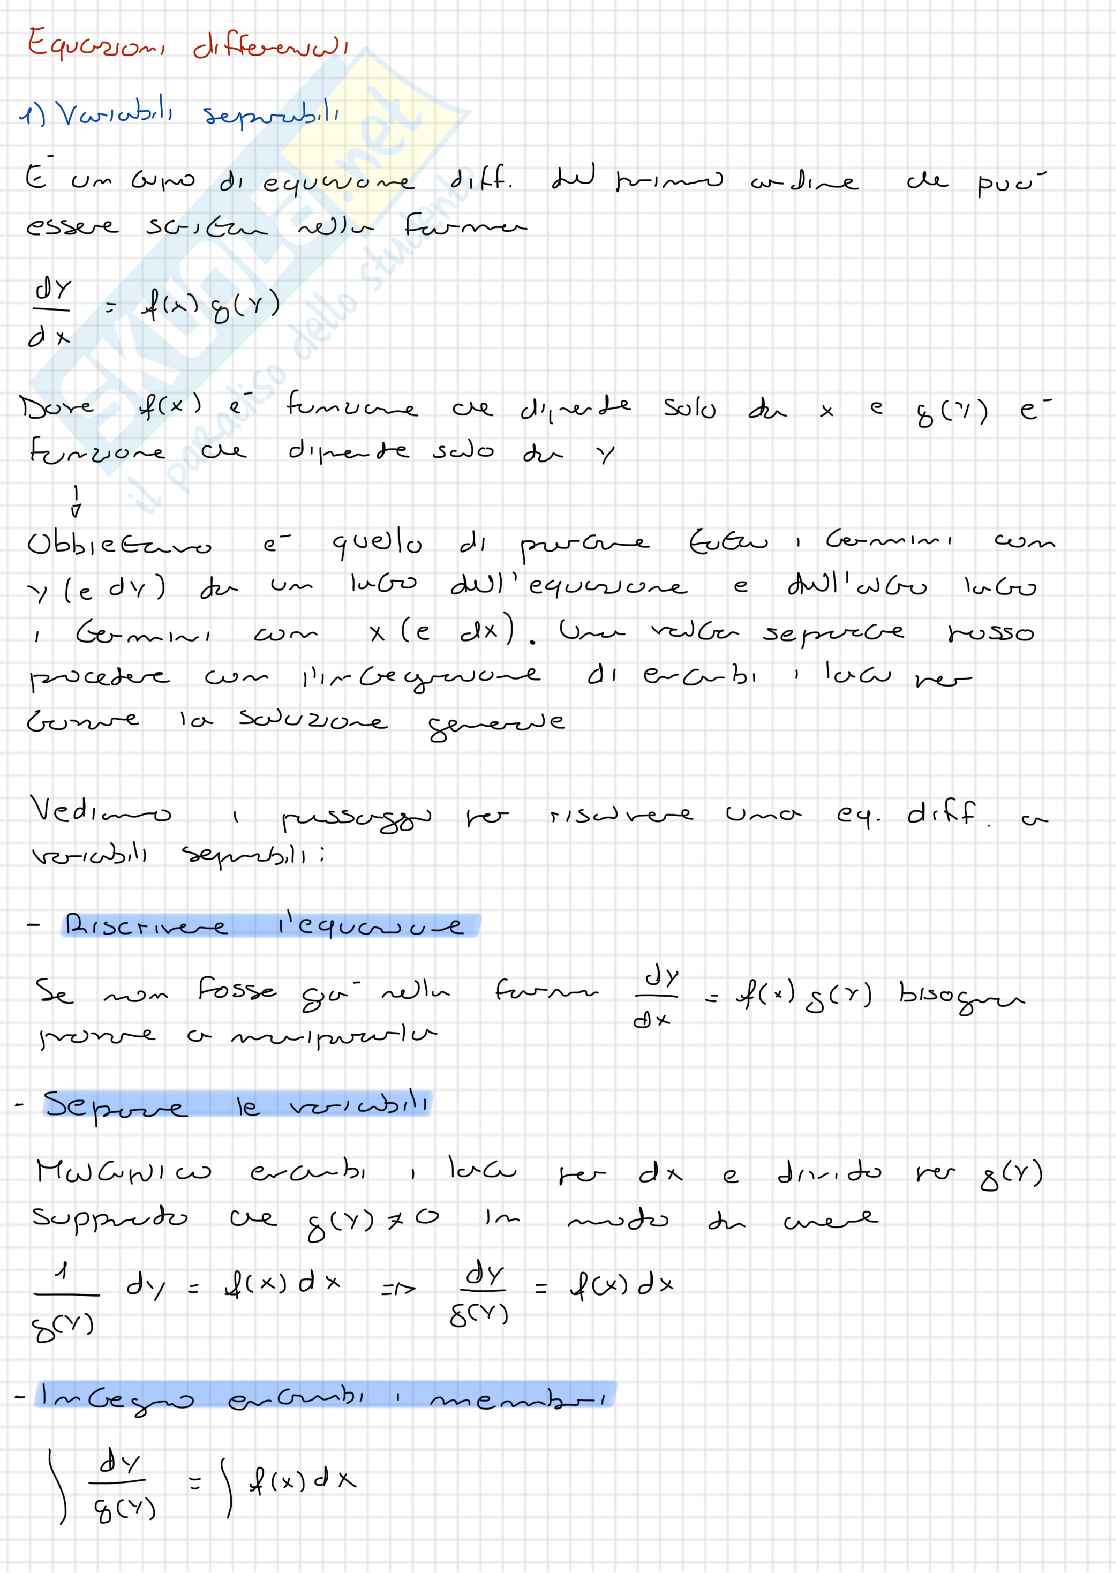 Equazioni differenziali
1) Variabili separabili
E' un tipo di equazione diff. del primo ordine che può
essere scritta nella forma
dy/dx = f(x) g(y)
Dove f(x) e' funzione che dipende solo da x e g(y) e'
funzione che dipende solo da y
↓
Obbiettivo e' quello di portare tutti i termini con
y (e dy) da un lato dell'equazione e dall'altro lato
i termini con x (e dx). Una volta separate posso
procedere con l'integrazione di entrambi i lati per
trovare la soluzione generale
Vediamo i passaggi per risolvere una eq. diff. a
variabili separabili:
- Riscrivere l'equazione
Se non fosse già nella forma dy/dx = f(x) g(y) bisogna
provare a manipolarla
- Separare le variabili
Moltiplico entrambi i lati per dx e divido per g(y)
supponendo che g(y) ≠ 0 in modo da avere
1/g(y) dy = f(x) dx => dy/g(y) = f(x) dx
- Integro entrambi i membri
∫ dy/g(y) = ∫ f(x) dx
SKUOLA.net
il paradiso dello studente